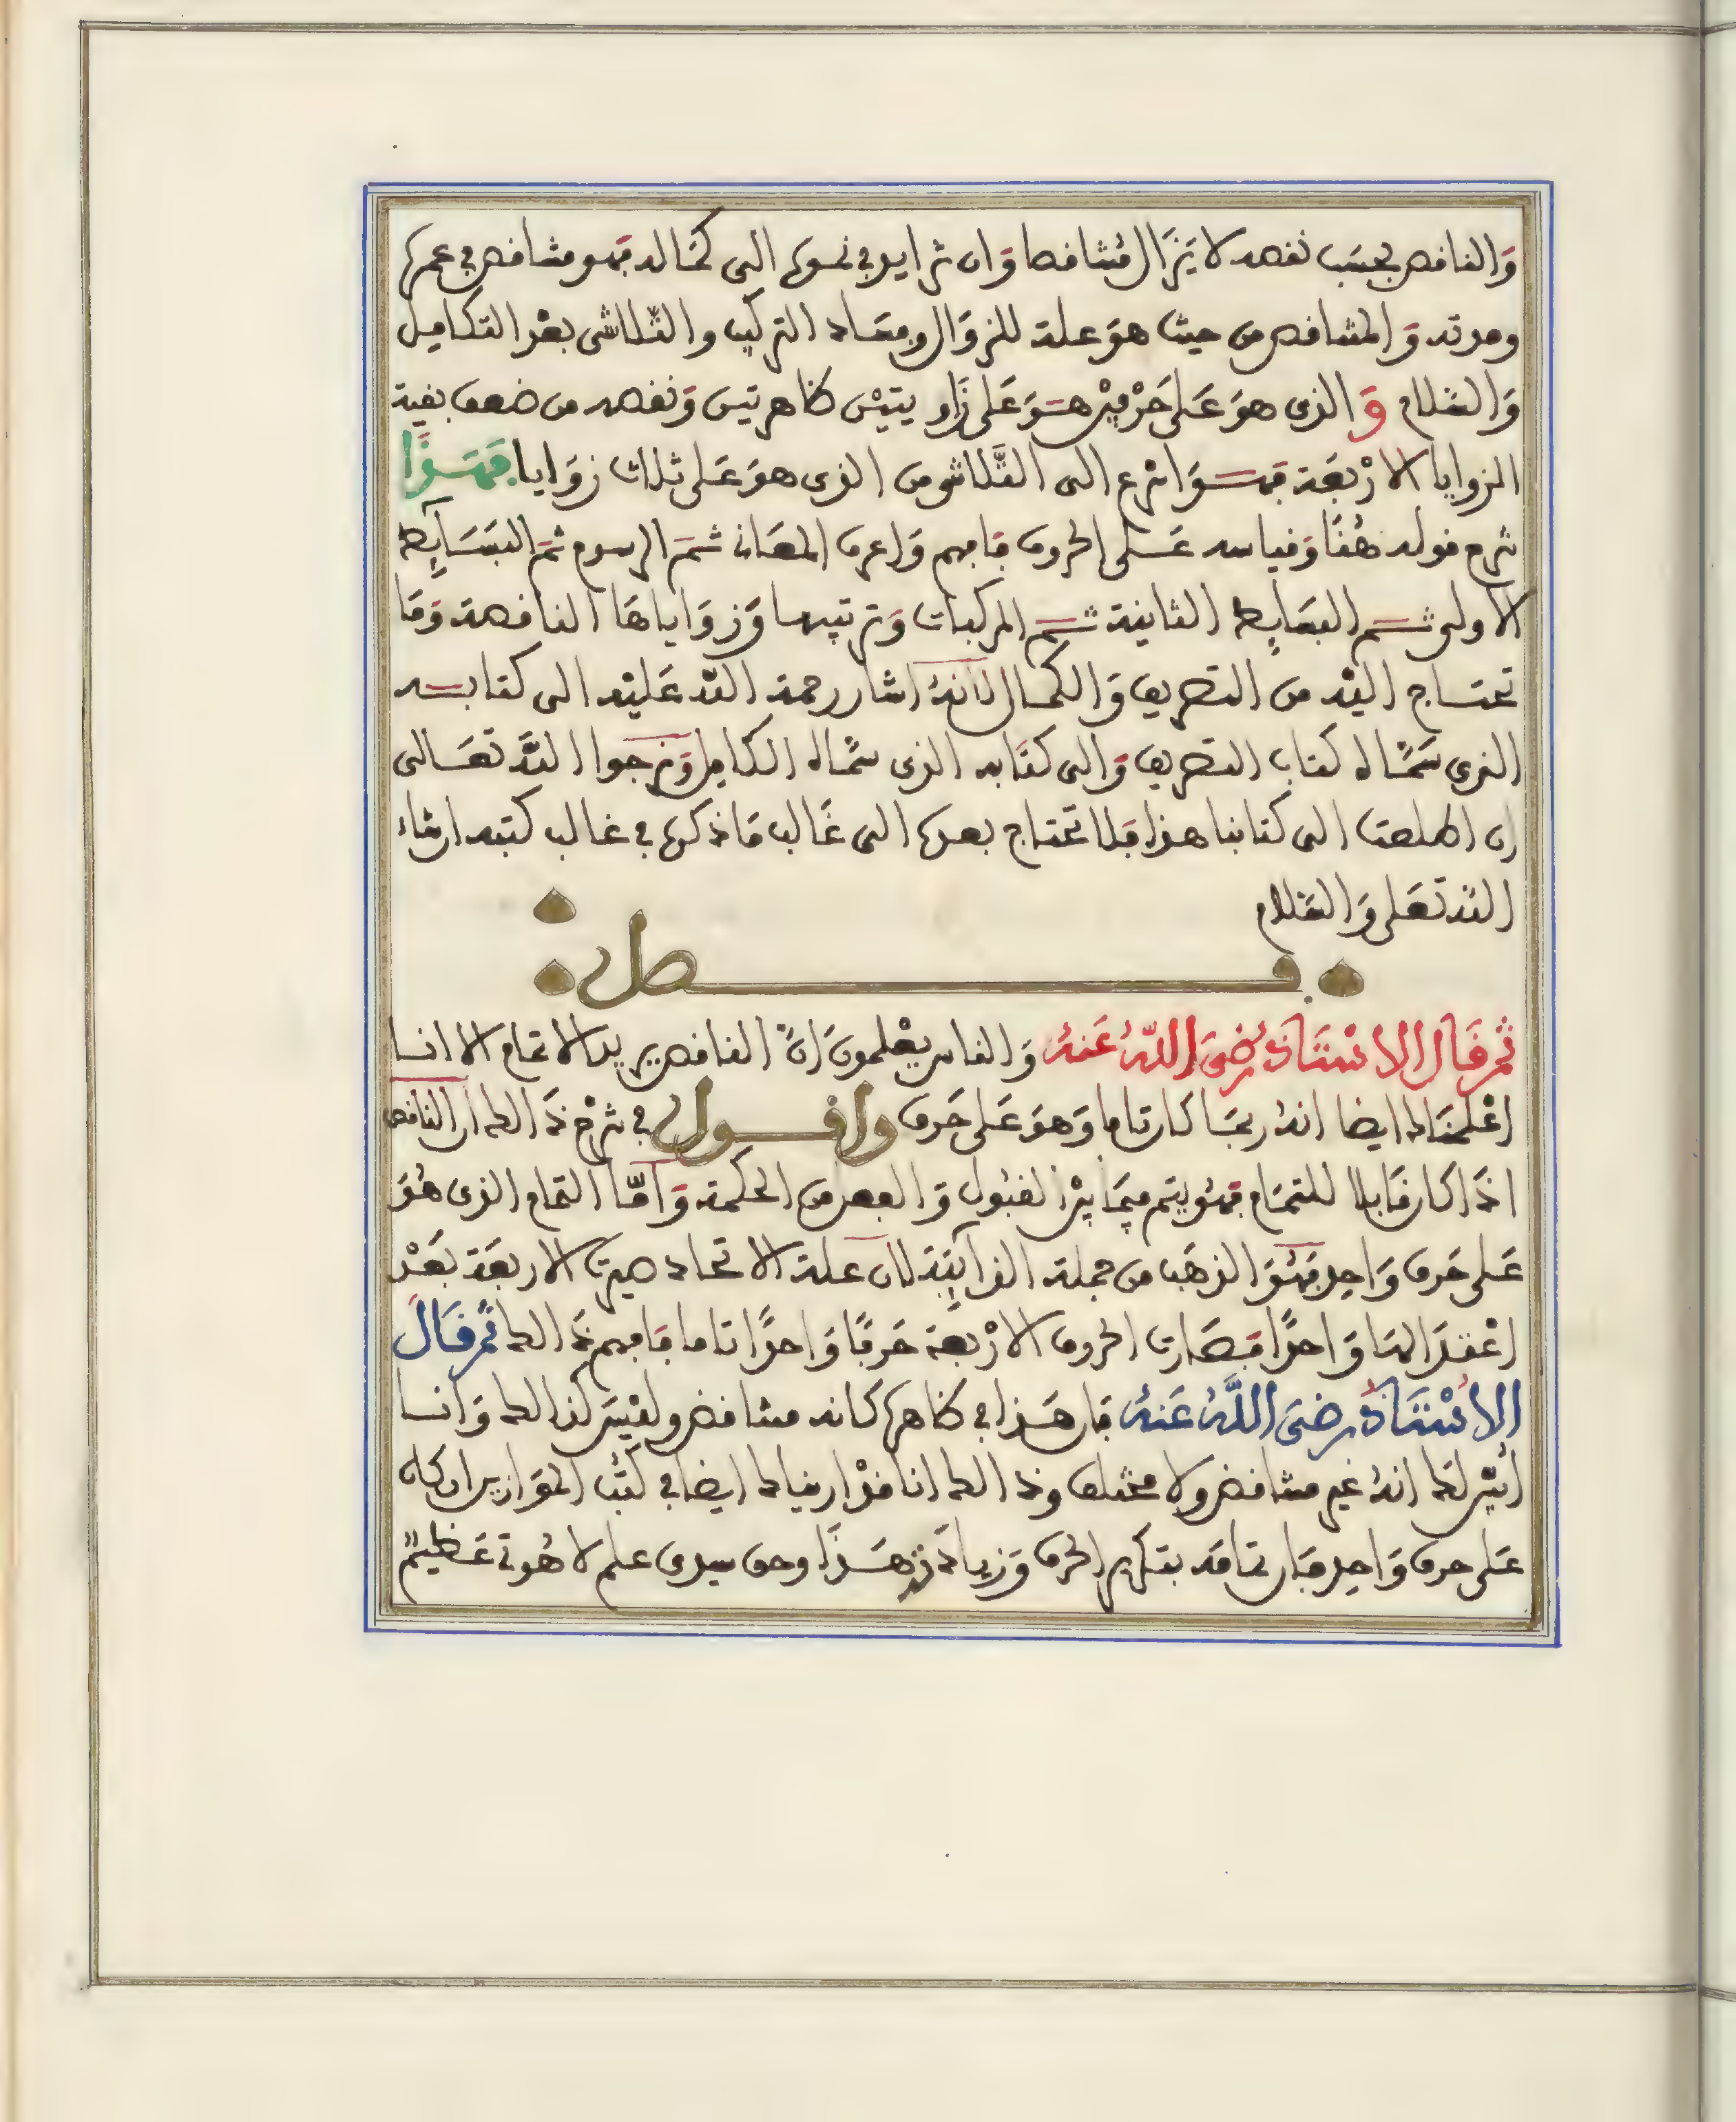 وَالناقص بحسَب نقصه لا يَزَال مُتناقصا وَان تزايد في نموه الى كماله فهو متناقص في عمره
ومدته وَالمتناقص من حيث هوَ علة للزوَال وفساد التركيب والتلاشي بعد التكامل
وَالسلام وَالذي هوَ عَلى حَرْفين هوَ عَلى زَاويتيْن ظاهرتين وَنقصه من ضعف بقية
الزوايا الارْبعَة فهوَ اسْرع الى التلاشي من الذي هوَ عَلى ثلاث زوَايا فهَذا
شرح قوله هُنا وَقياسه عَلى الحروف فافهم وَاعرف المعَان ثمَ الرسوم ثمَ البسَايط
الاولى ثم البسَايط الثانية ثم المركبات وَترتيبها وَزوَاياهَا الناقصة وَمَا
تحتاج اليْه من التصريف وَالكمال لانهُ اشار رحمة اللّه عَليْه الى كتابه
الذي سَمَّاه كتاب التصريف وَالى كتَابه الذي سمَّاه الكامل وَنرجوا اللّه تعَالى
ان اطلعت الى كتابنا هذا فلا تحتاج بعده الى غَالب مَا ذكره في غالب كتبه ان شاء
اللّه تعَلى وَالسَلام
فصل
ثم قَال الاسْتَاذ رَضيَ اللّهُ عَنهُ وَالناس يعْلمونَ انّ الناقص يريد الاتمام الا انا
اعْلمنَاك ايضا انهُ ربمَا كان تاما وَهوَ عَلى حَرف واقول في شرْح ذَالك ان الناقص
اذَا كان قَابلا للتمَام فهُو يتم فيمَا بيْن القبُول وَالفعل من الحكمة وَامّا التمام الذي هُوَ
عَلى حَرف وَاحد فهُوَ الذهَب من جملة الذآيبَة لان علة الاتحاد صيرت الاربعَة بعْد
اعْتدَالهَا وَاحدًا فصَارت الحروف الارْبعة حَرفًا وَاحدًا تاما فافهم ذَالك ثم قَال
الاسْتَاذُ رضيَ اللَّهُ عَنهُ فان هَذا في ظاهره كانه متناقض وليْسَ كذالك وَانا
ابيّن لكَ انهُ غير متناقض ولا مختلف وذالك انا قدْ اريناك ايضا في كتُب الموَازين ان كان
عَلى حرف وَاحد فَان تمامَه بتكرير الحرف وَزيادَته هَذا وحق سيدي علم لاهُوتي عَظيمٌ